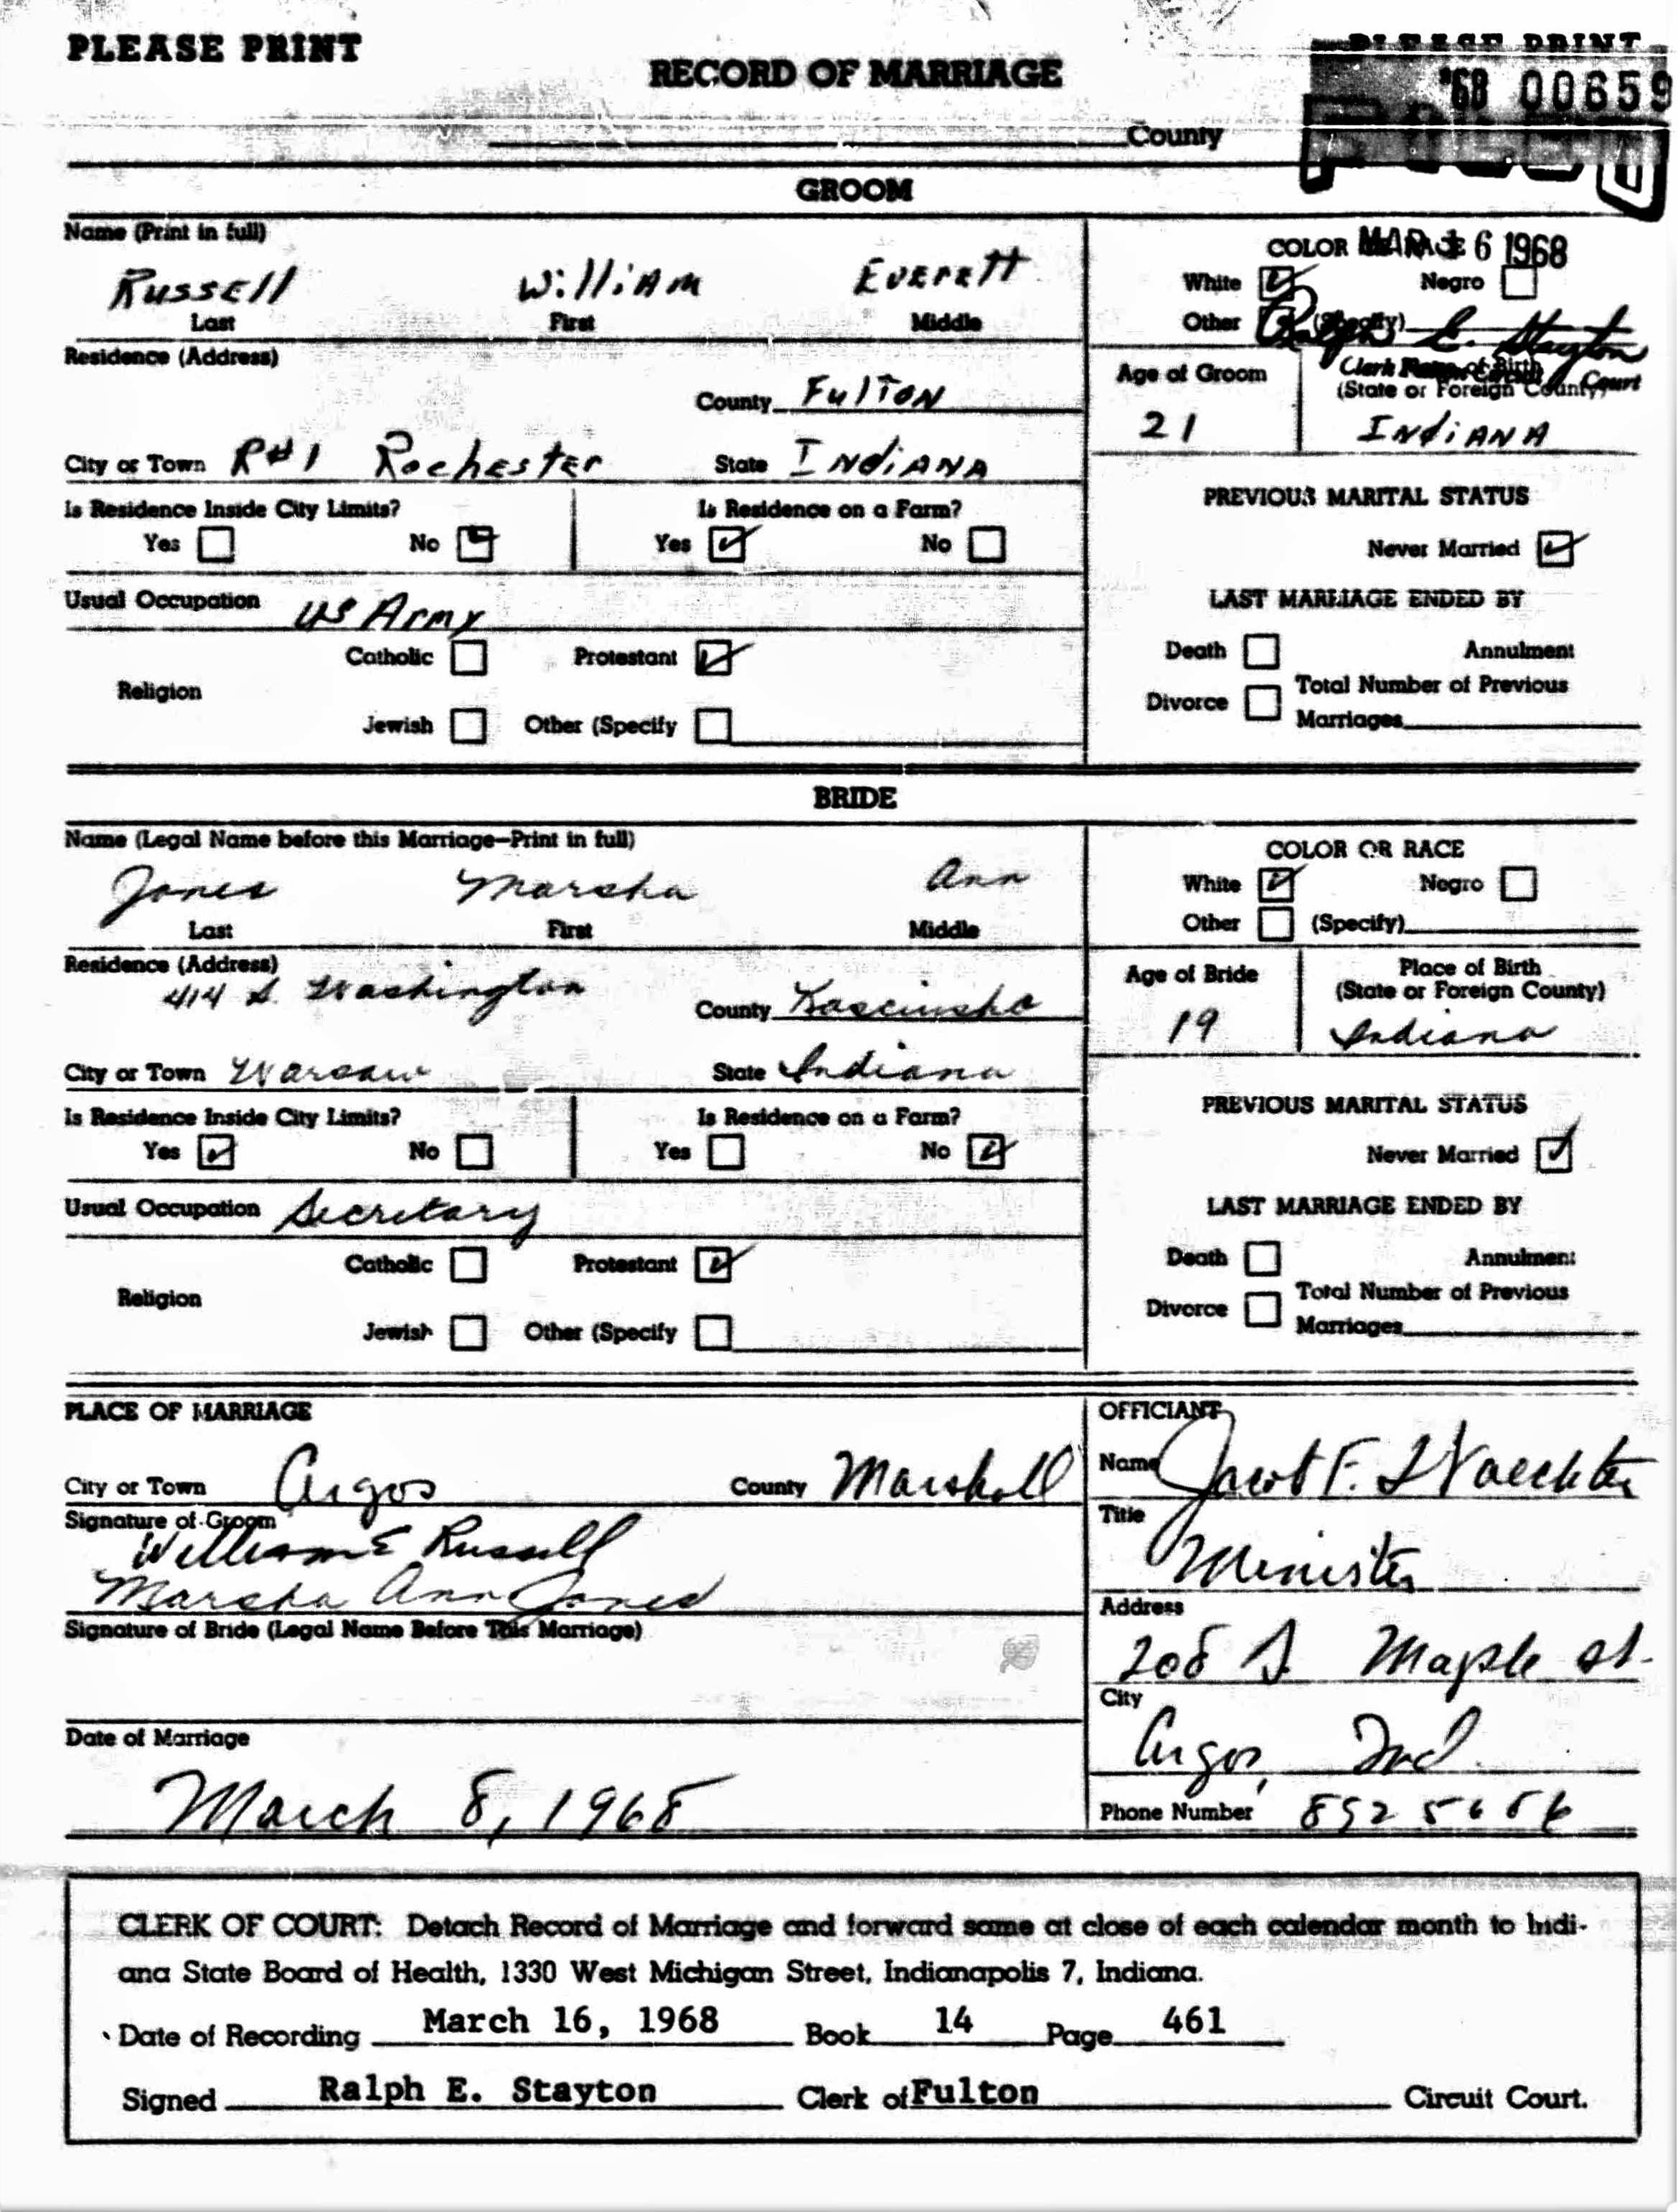 PLEASE PRINT
PLEASE PRINT
RECORD OF MARRIAGE
'68 00659
County
FILED
GROOM
Name (Print in full)
COLOR
MAR 16 1968
Russell William Everett
White Negro
Last First Middle
Other (Specify)
Ralph E. Stayton
Residence (Address)
Age of Groom
Clerk Court
(State or Foreign County)
County Fulton
21 Indiana
City or Town R#1 Rochester State Indiana
PREVIOUS MARITAL STATUS
Is Residence Inside City Limits? Is Residence on a Farm?
Yes No Yes No
Never Married
Usual Occupation US Army
LAST MARRIAGE ENDED BY
Catholic Protestant
Death Annulment
Religion
Total Number of Previous
Divorce
Marriages
Jewish Other (Specify
BRIDE
Name (Legal Name before this Marriage–Print in full)
COLOR OR RACE
Jones Marsha Ann
White Negro
Last First Middle
Other (Specify)
Residence (Address)
Age of Bride
Place of Birth
(State or Foreign County)
414 S. Washington
County
19 Indiana
City or Town Warsaw State Indiana
PREVIOUS MARITAL STATUS
Is Residence Inside City Limits? Is Residence on a Farm?
Yes No Yes No
Never Married
Usual Occupation Secretary
LAST MARRIAGE ENDED BY
Catholic Protestant
Death Annulment
Religion
Total Number of Previous
Divorce
Marriages
Jewish Other (Specify
PLACE OF MARRIAGE
OFFICIANT
City or Town Argos County Marshall
Name Jacob F. Waechter
Signature of Groom
Title
William E Russell
Minister
Marsha Ann Jones
Address
Signature of Bride (Legal Name Before This Marriage)
208 S. Maple St.
City
Argos, Ind.
Date of Marriage
March 8, 1968
Phone Number 892 5656
CLERK OF COURT: Detach Record of Marriage and forward same at close of each calendar month to Indi-
ana State Board of Health, 1330 West Michigan Street, Indianapolis 7, Indiana.
Date of Recording March 16, 1968 Book 14 Page 461
Signed Ralph E. Stayton Clerk of Fulton Circuit Court.